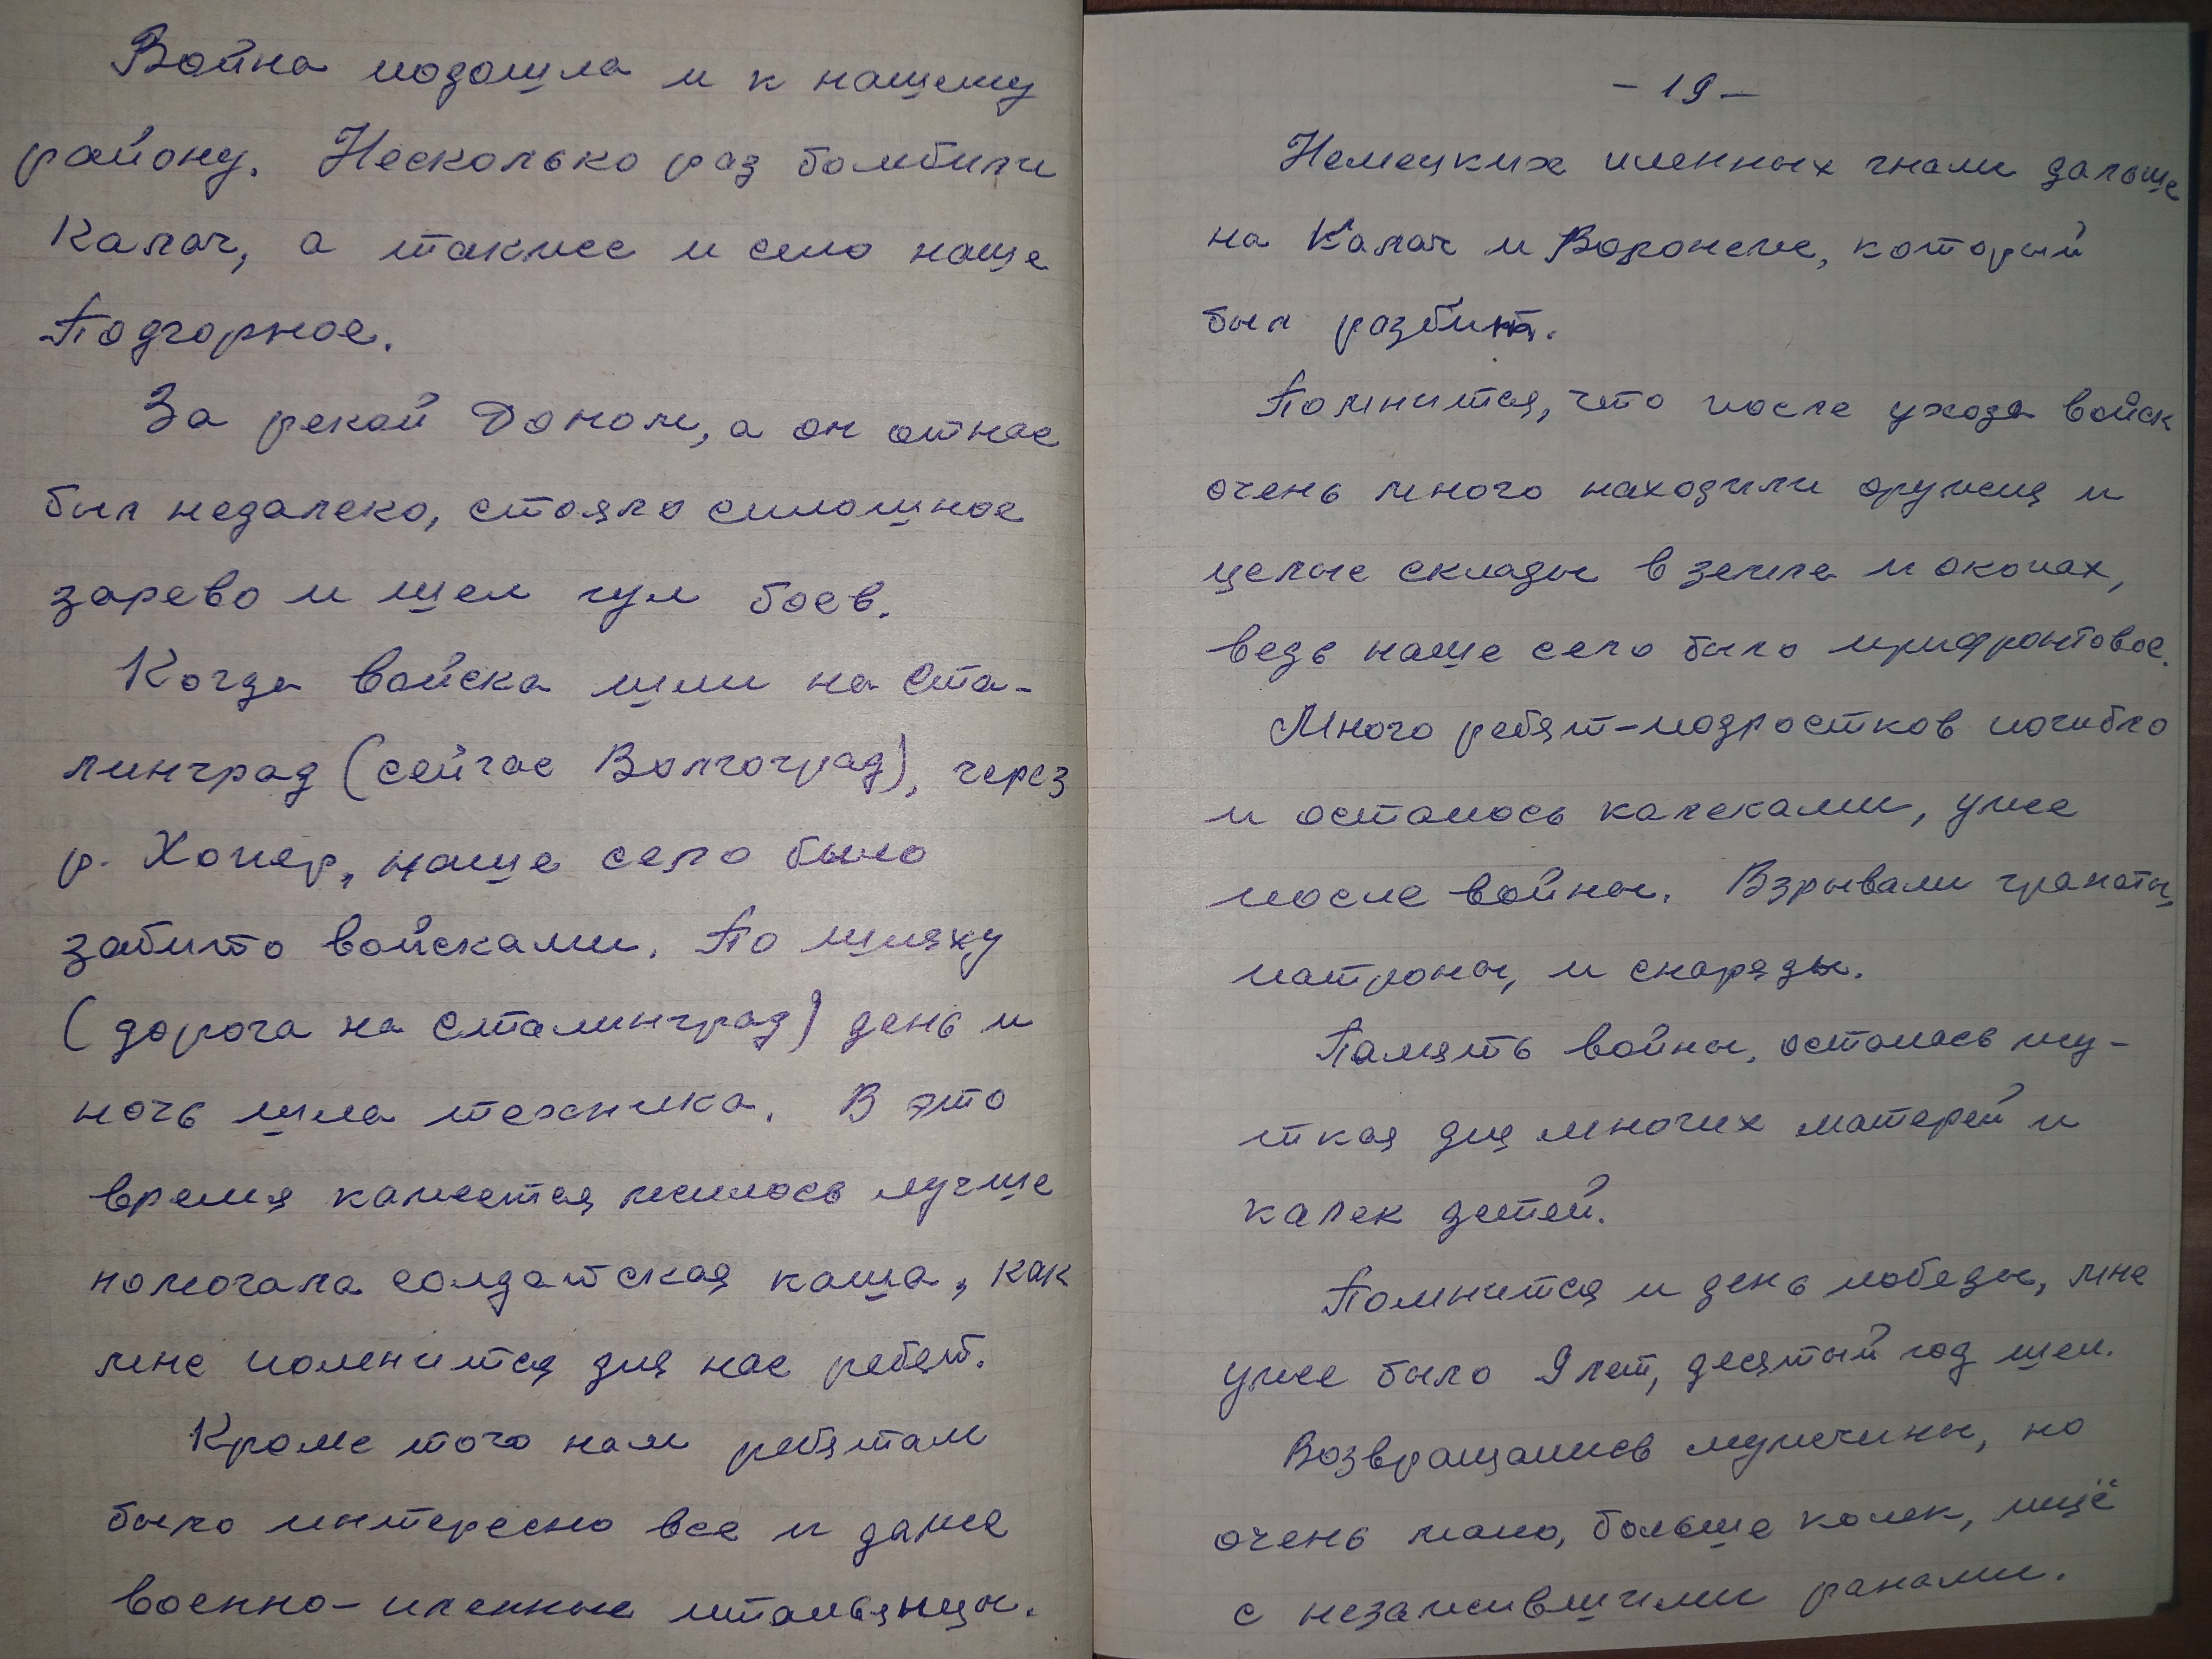 Война подошла и к нашему
району. Несколько раз бомбили
Калач, а также и село наше
Подгорное.
За рекой Доном, а он от нас
был недалеко, стояло сплошное
зарево и шел гул боев.
Когда войска шли на Ста-
линград (сейчас Волгоград), через
р. Хопер, наше село было
забито войсками. По шляху
(дорога на Сталинград) день и
ночь шла техника. В это
время кажется жилось лучше
помогала солдатская каша, как
мне помнится для нас ребят.
Кроме того нам ребятам
было интересно все и даже
военно-пленные итальянцы.
- 19 -
Немецких пленных гнали дальше
на Калач и Воронеж, который
был разбит.
Помнится, что после ухода войск
очень много находили оружия и
целые склады в земле и окопах,
ведь наше село было прифронтовое.
Много ребят-подростков погибло
и осталось калеками, уже
после войны. Взрывали гранаты,
патроны, и снаряды.
Память войны, осталась жу-
ткая для многих матерей и
калек детей.
Помнится и день победы, мне
уже было 9 лет, десятый год шел.
Возвращались мужчины, но
очень мало, больше калек, ищё
с незажившими ранами.